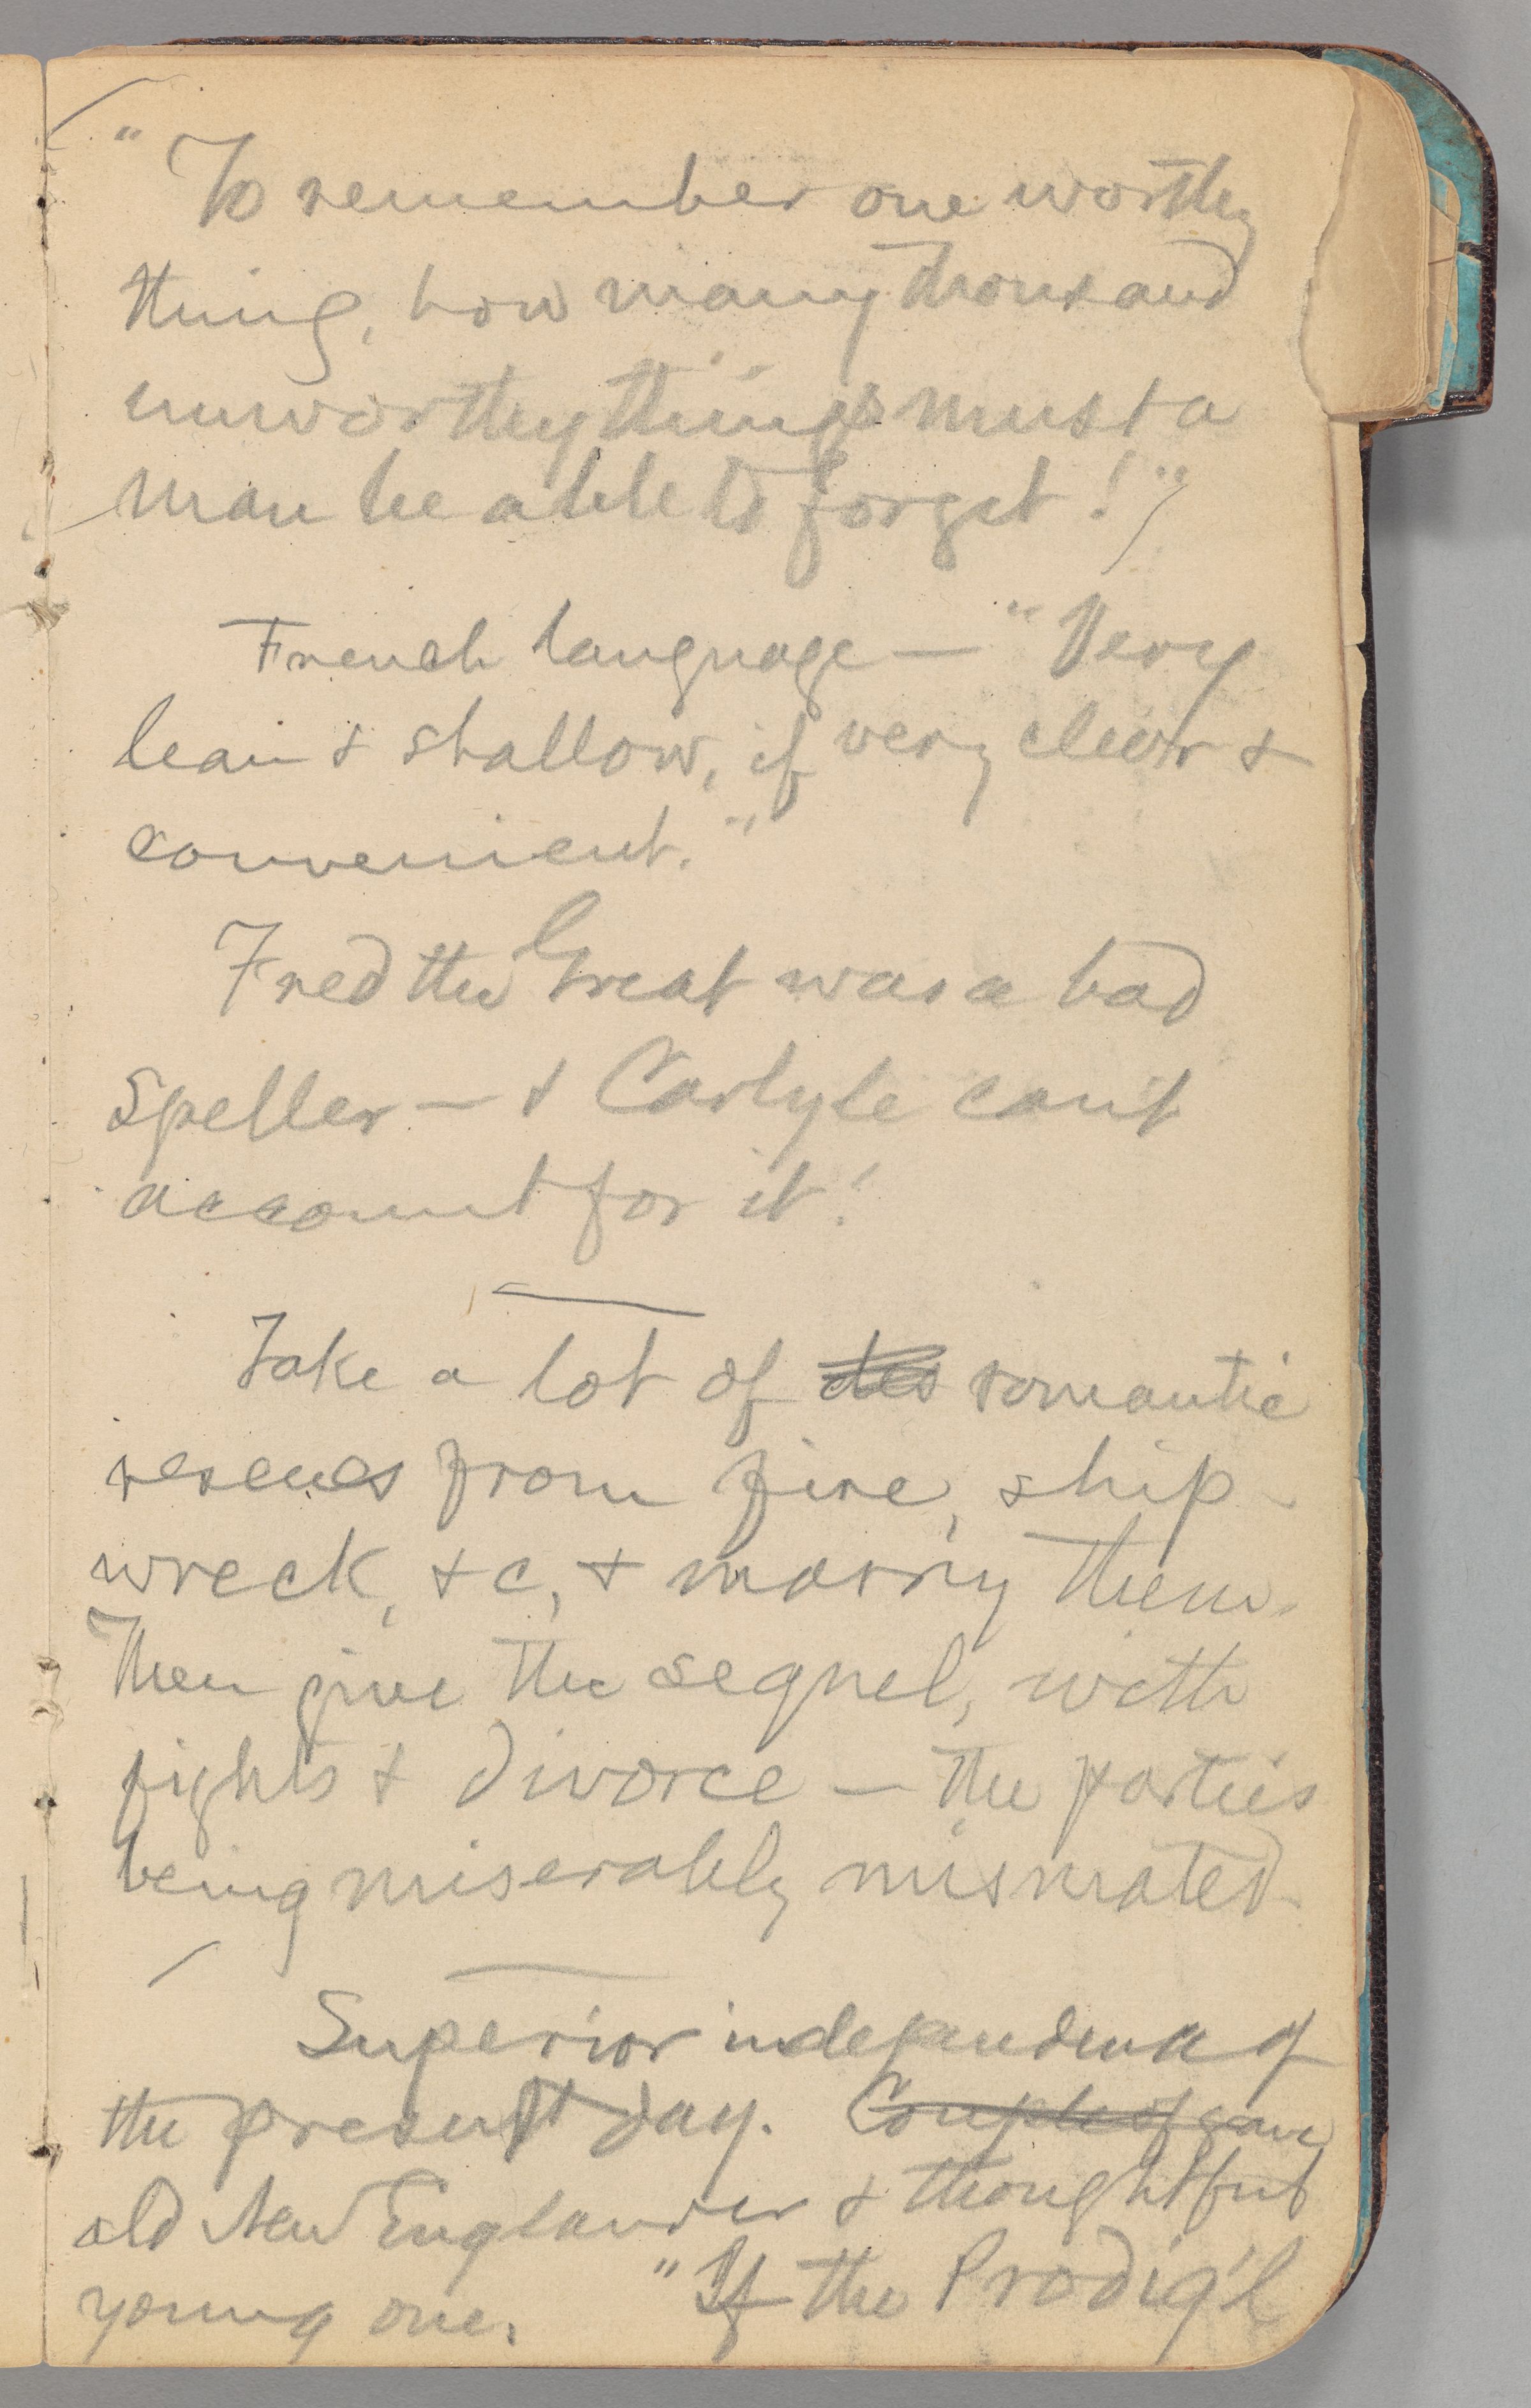 "To remember one worthy
thing, how many thousand
unworthy things must a
man be able to forget!"
French language — "Very
lean & shallow, if very clear &
convenient."
Fred the Great was a bad
Speller — & Carlyle can't
account for it!
Take a lot of romantic
rescues from fire, ship-
wreck, &c, & marry them.
Then give the sequel, with
fights & divorce — the parties
being miserably mismated
Superior independence of
the present day. Couple of
old New Englander & thoughtful
young one. "If the Prodig'l